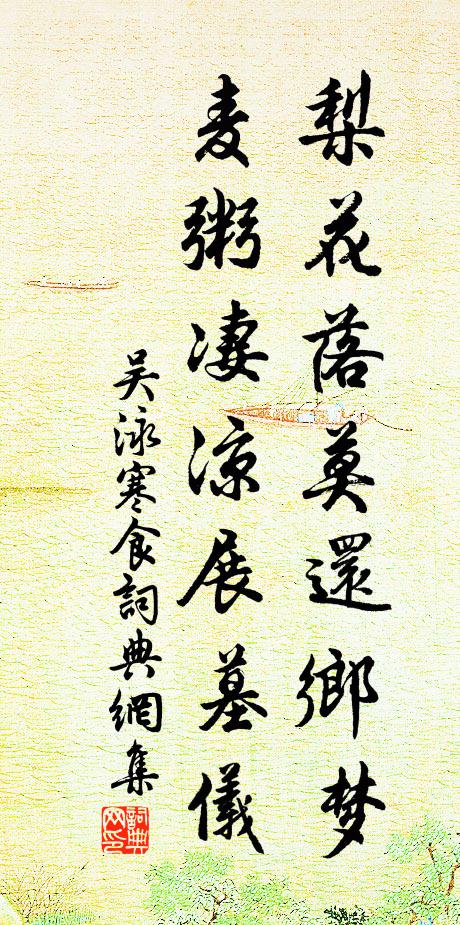 梨花落莫還鄉梦
麦粥凄凉展墓儀
吴泳寒食詞典網集
詞典网印